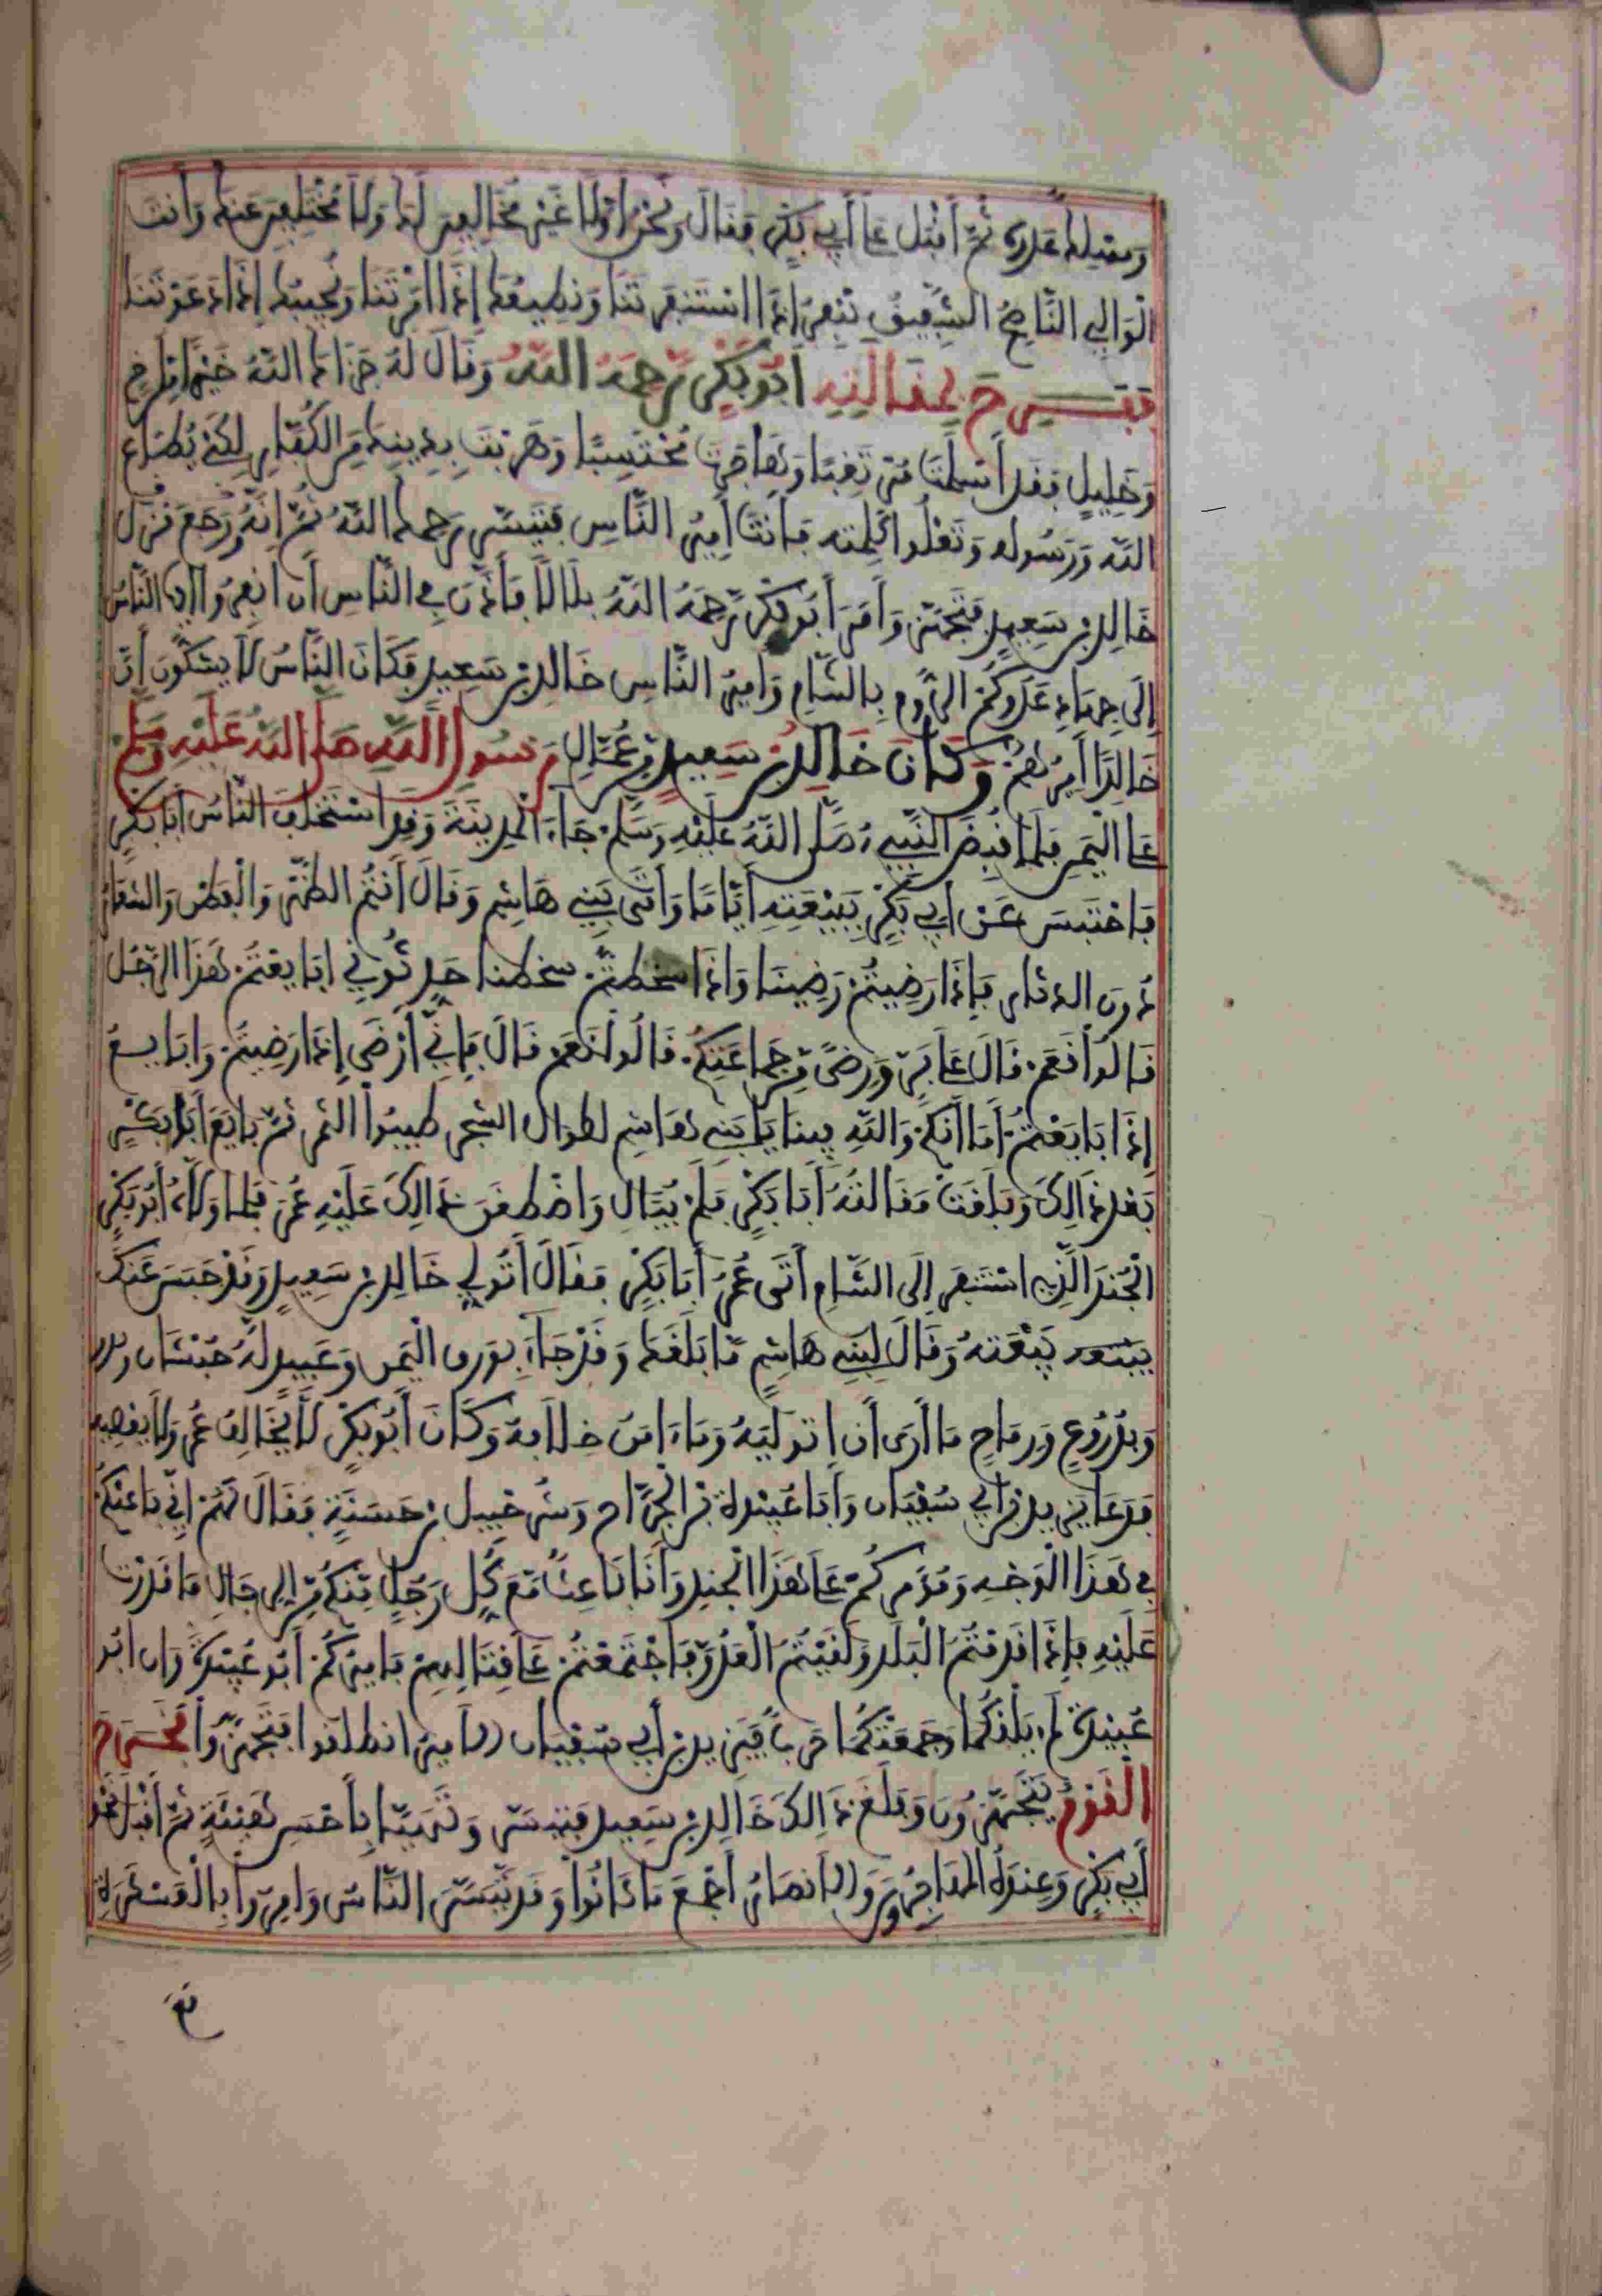 ومقبله عدوه ثم أقبل على أبي بكر فقال ونحن أولا غير مخالفين لك ولا مختلفين عنك وأنت
الْوالي النَّاصح الشَّفيق ننفر إذا استنفرتنا ونطيعك إذا امرتنا ونجيبك إذا دعوتنا
ففرح بمقالته أبو بكر رحمه الله وقال له جزاك الله خيرا من اخ
وخليل فقد أسلمت مرتغبا وهاجرت محتسبا وهربت بدينك من الكفار لكي يطاع
الله ورسوله وتعلوا كلمته فأنت أمير الناس فتيسر رحمك الله ثم إنه رجع فنزل
خالد بن سعيد فتجهز وأمر أبو بكر رحمه الله بلالا فأذن في الناس أن انفروا أيها الناس
إلى جهاد عدوكم الروم بالشام وأمير الناس خالد بن سعيد فكان الناس لا يشكون أن
خالدا أميرهم وكان خالد بن سعيد من عمال رسول الله صلى الله عليه وسلم
على اليمن فلما قبض النبيء صلى الله عليه وسلم جاء المدينة وقد استخلف الناس أبا بكر
فاحتبس عن أبي بكر ببيعته أياما وأتى بني هاشم وقال أنتم الظهر والبطن والشعار
دون الدثار فإذا رضيتم رضينا وإذا سخطتم سخطنا حدثوني ابايعتم هذا الرجل
قالوا نعم قال على بر ورضى من جماعتكم قالوا نعم قال فإني أرضى إذا رضيتم وابايع
إذا بايعتم أما أنكم والله فينا يا بني هاشم لطوال الشجر طيبوا الثمر ثم بايع أبا بكر
بعد ذالك وبلغت مقالته أبا بكر فلم يبال واضطغن ذالك عليه عمر فلما ولاه أبو بكر
الجند الذي استنفر إلى الشام أتى عمر أبا بكر فقال أتولي خالد بن سعيد وقد حبس عنك
بيعته وقال لبني هاشم ما بلغك وقد جاء بورق اليمن وعبيد له حبشان
وبدروع ورماح ما أرى أن توليه وما امن خلافه وكان أبو بكر لا يخالف عمر ولا يعصيه
فدعا يزيد بن أبي سفيان وأبا عبيدة بن الجراح وشرحبيل بن حسنة فقال لهم إني باعثكم
في هذا الوجه ومؤمركم على هذا الجند وأنا باعث مع كل رجل منكم من الرجال ما قدرت
عليه فإذا قدمتم البلد ولقيتم العدو فاجتمعتم على قتالهم فأميركم أبو عبيدة وإن أبو
عبيدة لم يلقكما وجمعتكما حرب فيزيد بن أبي سفيان الأمير انطلقوا فتجهزوا فخرج
القوم يتجهزون وبلغ ذالك خالد بن سعيد فتيسر وتهيا بأحسن هيئة ثم أقبل نحو
أبي بكر وعنده المهاجرون والأنصار أجمع ما كانوا وقد تيسر الناس وامروا بالعسكرة